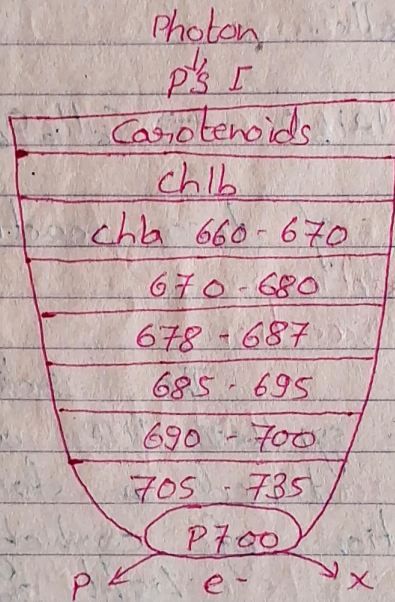 Photon
PS I
Carotenoids
chlb
chla 660-670
670-680
678-687
685-695
690-700
705-735
P700
P e- X